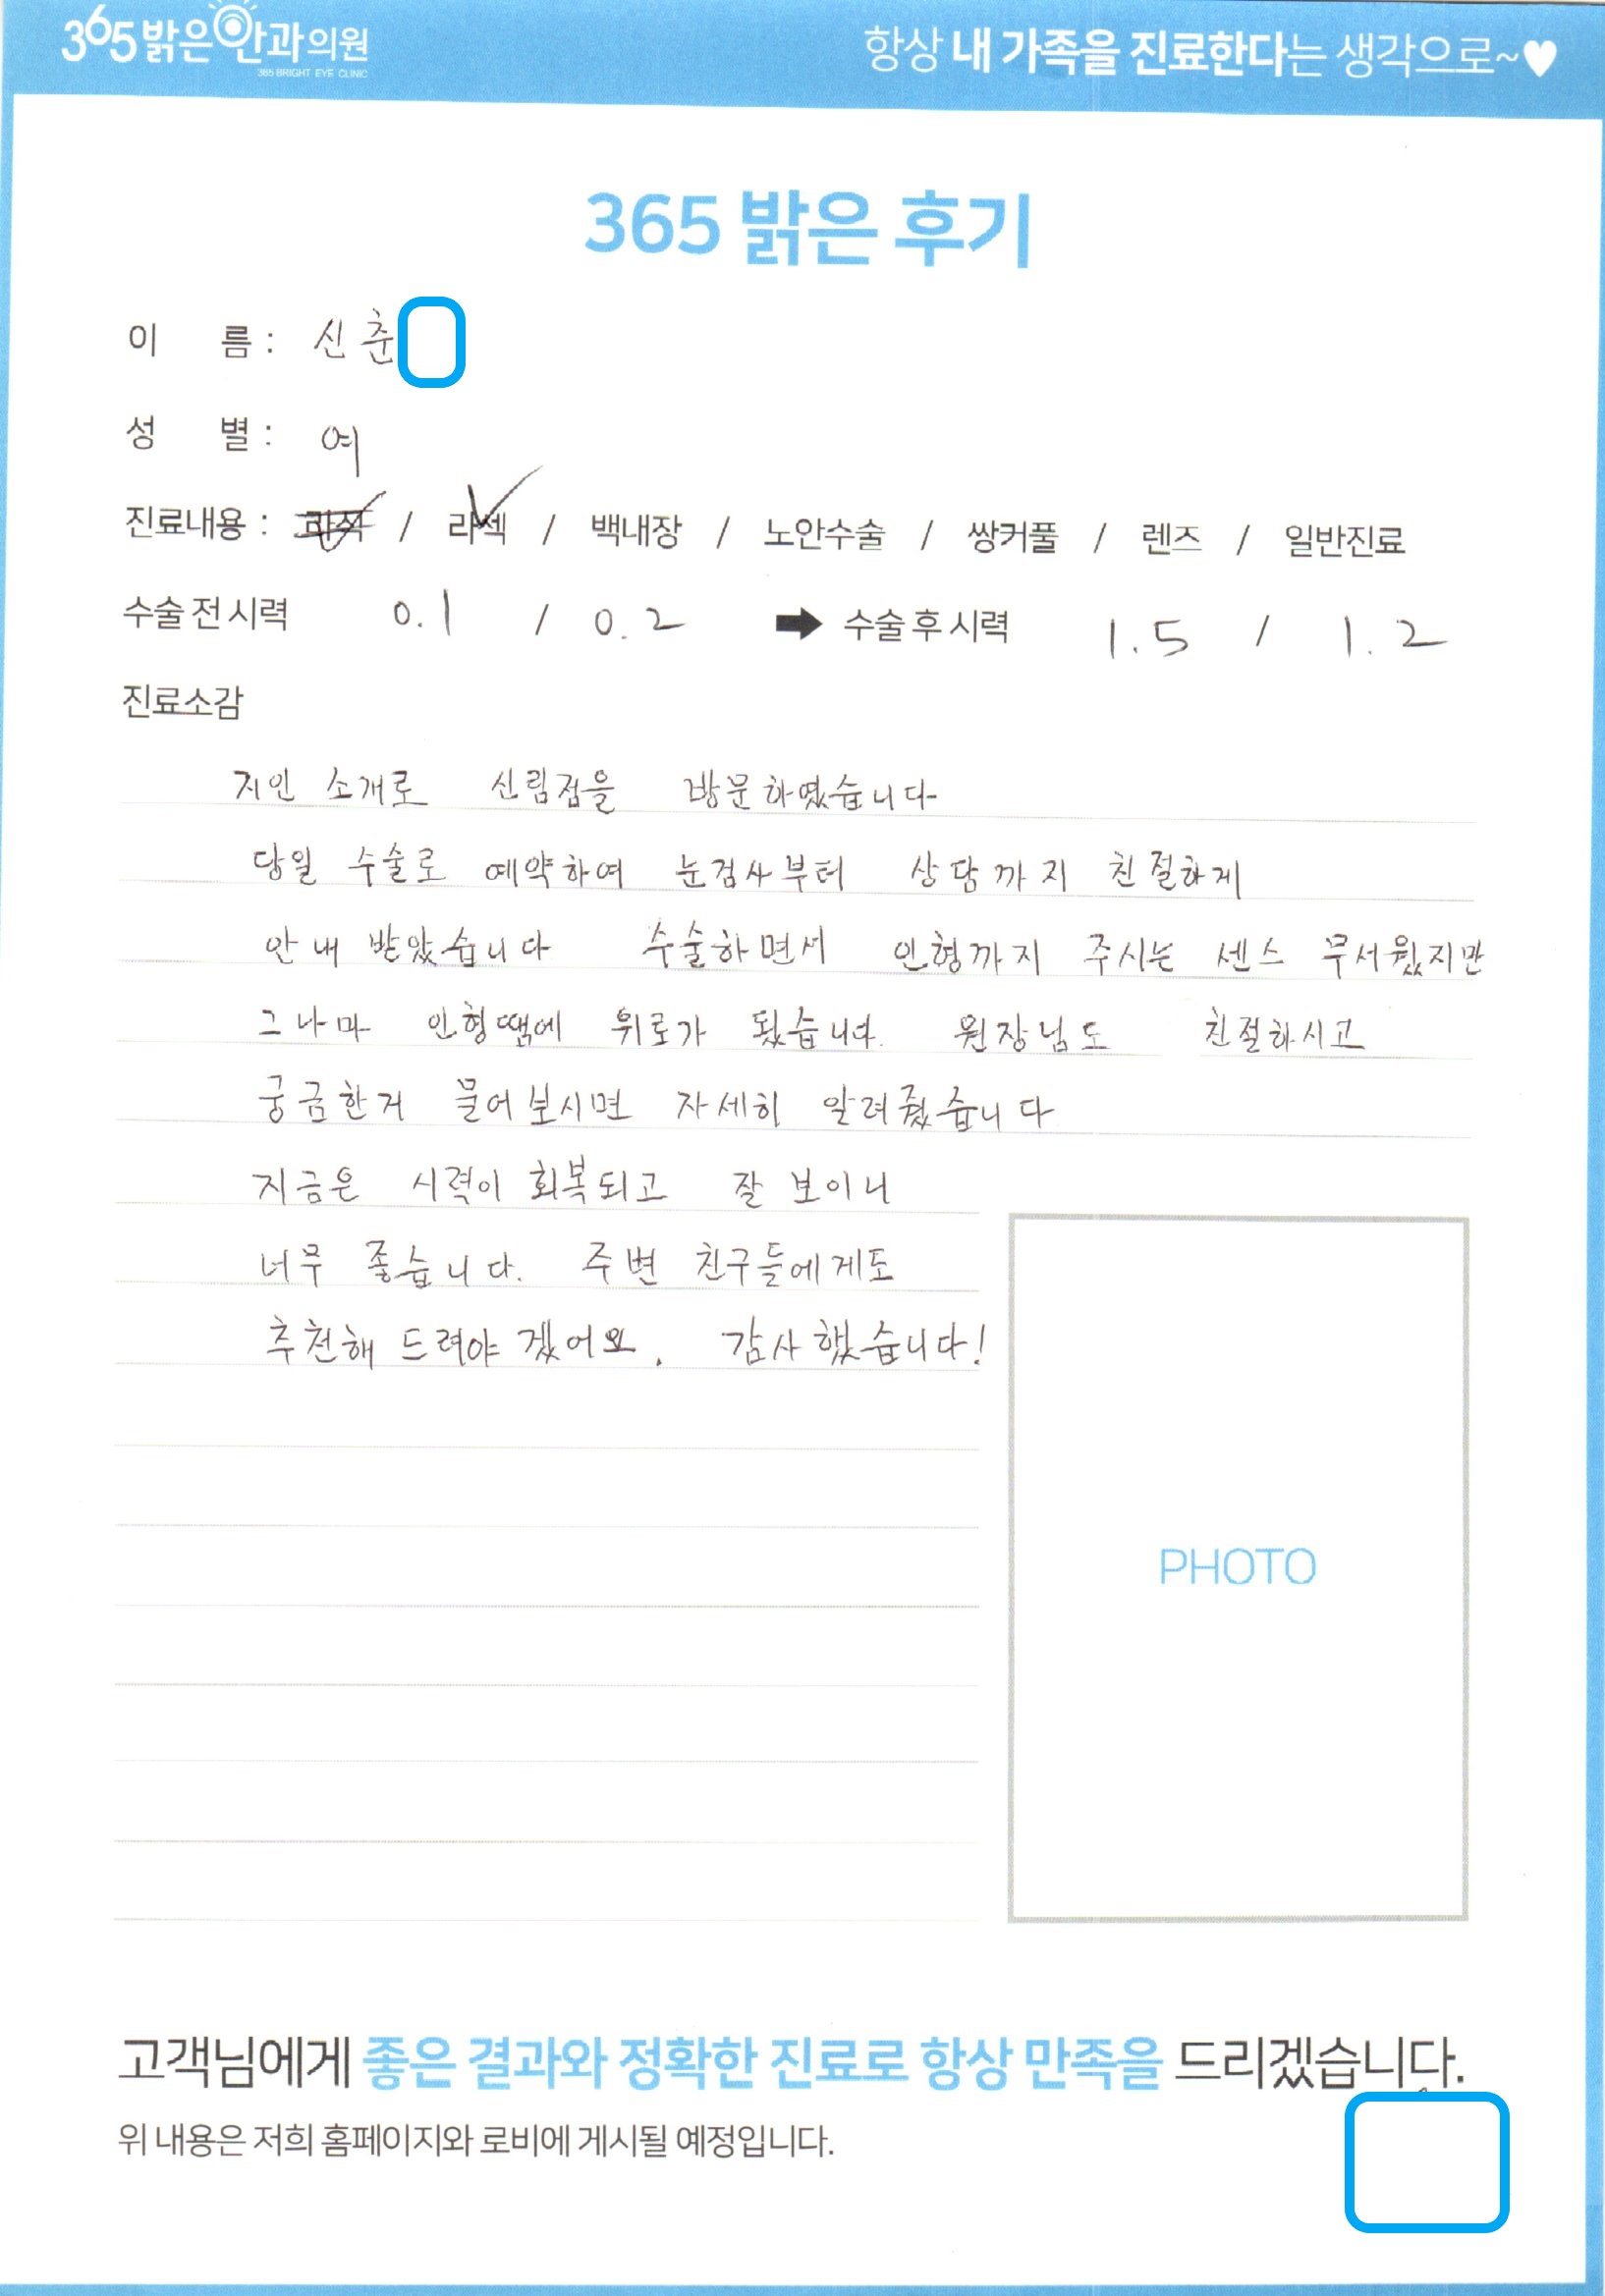 365 밝은안과의원
365 BRIGHT EYE CLINIC
항상 내 가족을 진료한다는 생각으로~♥
365 밝은 후기
이 름 : 신춘
성 별 : 여
진료내용 : 라식 / 라섹 / 백내장 / 노안수술 / 쌍커풀 / 렌즈 / 일반진료
수술 전 시력 0.1 / 0.2 ➡ 수술 후 시력 1.5 / 1.2
진료소감
지인 소개로 신림점을 방문하였습니다
당일 수술로 예약하여 눈검사부터 상담까지 친절하게
안내 받았습니다 수술하면서 인형까지 주시는 센스 무서웠지만
그나마 인형땜에 위로가 됬습니다. 원장님도 친절하시고
궁금한거 물어보시면 자세히 알려줬습니다
지금은 시력이 회복되고 잘 보이니
너무 좋습니다. 주변 친구들에게도
추천해 드려야 겠어요. 감사했습니다!
PHOTO
고객님에게 좋은 결과와 정확한 진료로 항상 만족을 드리겠습니다.
위 내용은 저희 홈페이지와 로비에 게시될 예정입니다.